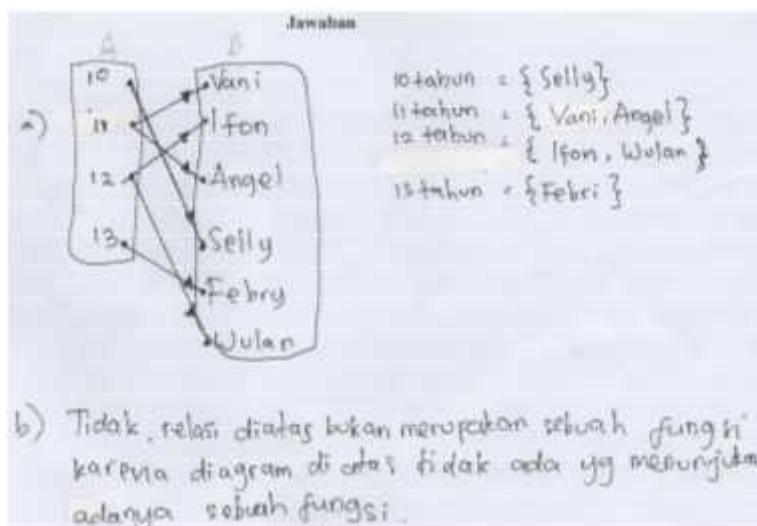 Jawaban
A B
a)
10
11
12
13
Vani
Ifon
Angel
Selly
Febry
Wulan
10 tahun = { Selly }
11 tahun = { Vani, Angel }
12 tahun =
{ Ifon, Wulan }
13 tahun = { Febri }
b) Tidak, relasi diatas bukan merupakan sebuah fungsi
karena diagram di atas tidak ada yg menunjukan
adanya sebuah fungsi.